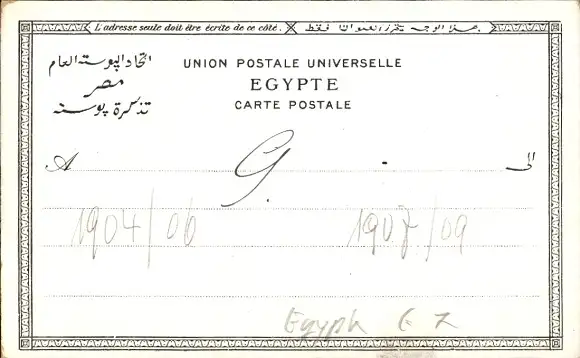 L'adresse seule doit être écrite de ce côté. هذا الوجه يكتب العنوان فقط
اتحاد البوسته العام UNION POSTALE UNIVERSELLE
مصر EGYPTE
تذكرة بوسته CARTE POSTALE
A G. الى
1904/06 1907/09
Egypt